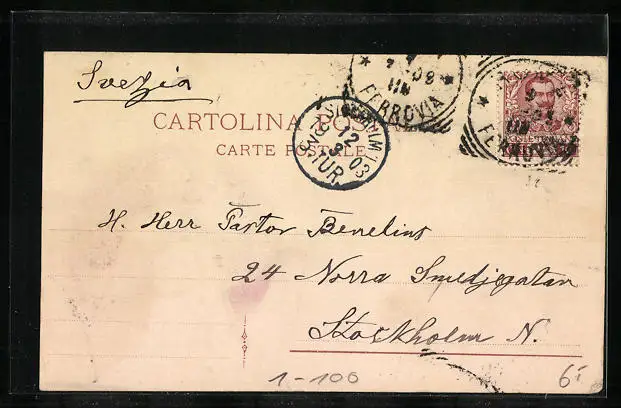 Svezia
CARTOLINA POS
CARTE POSTALE
FERROVIA
FERROV
STOCKHOLM 1
12
3
03
TUR.
H. Herr Pastor Benelius
24 Norra Smedjegatan
Stockholm N.
1-100
6